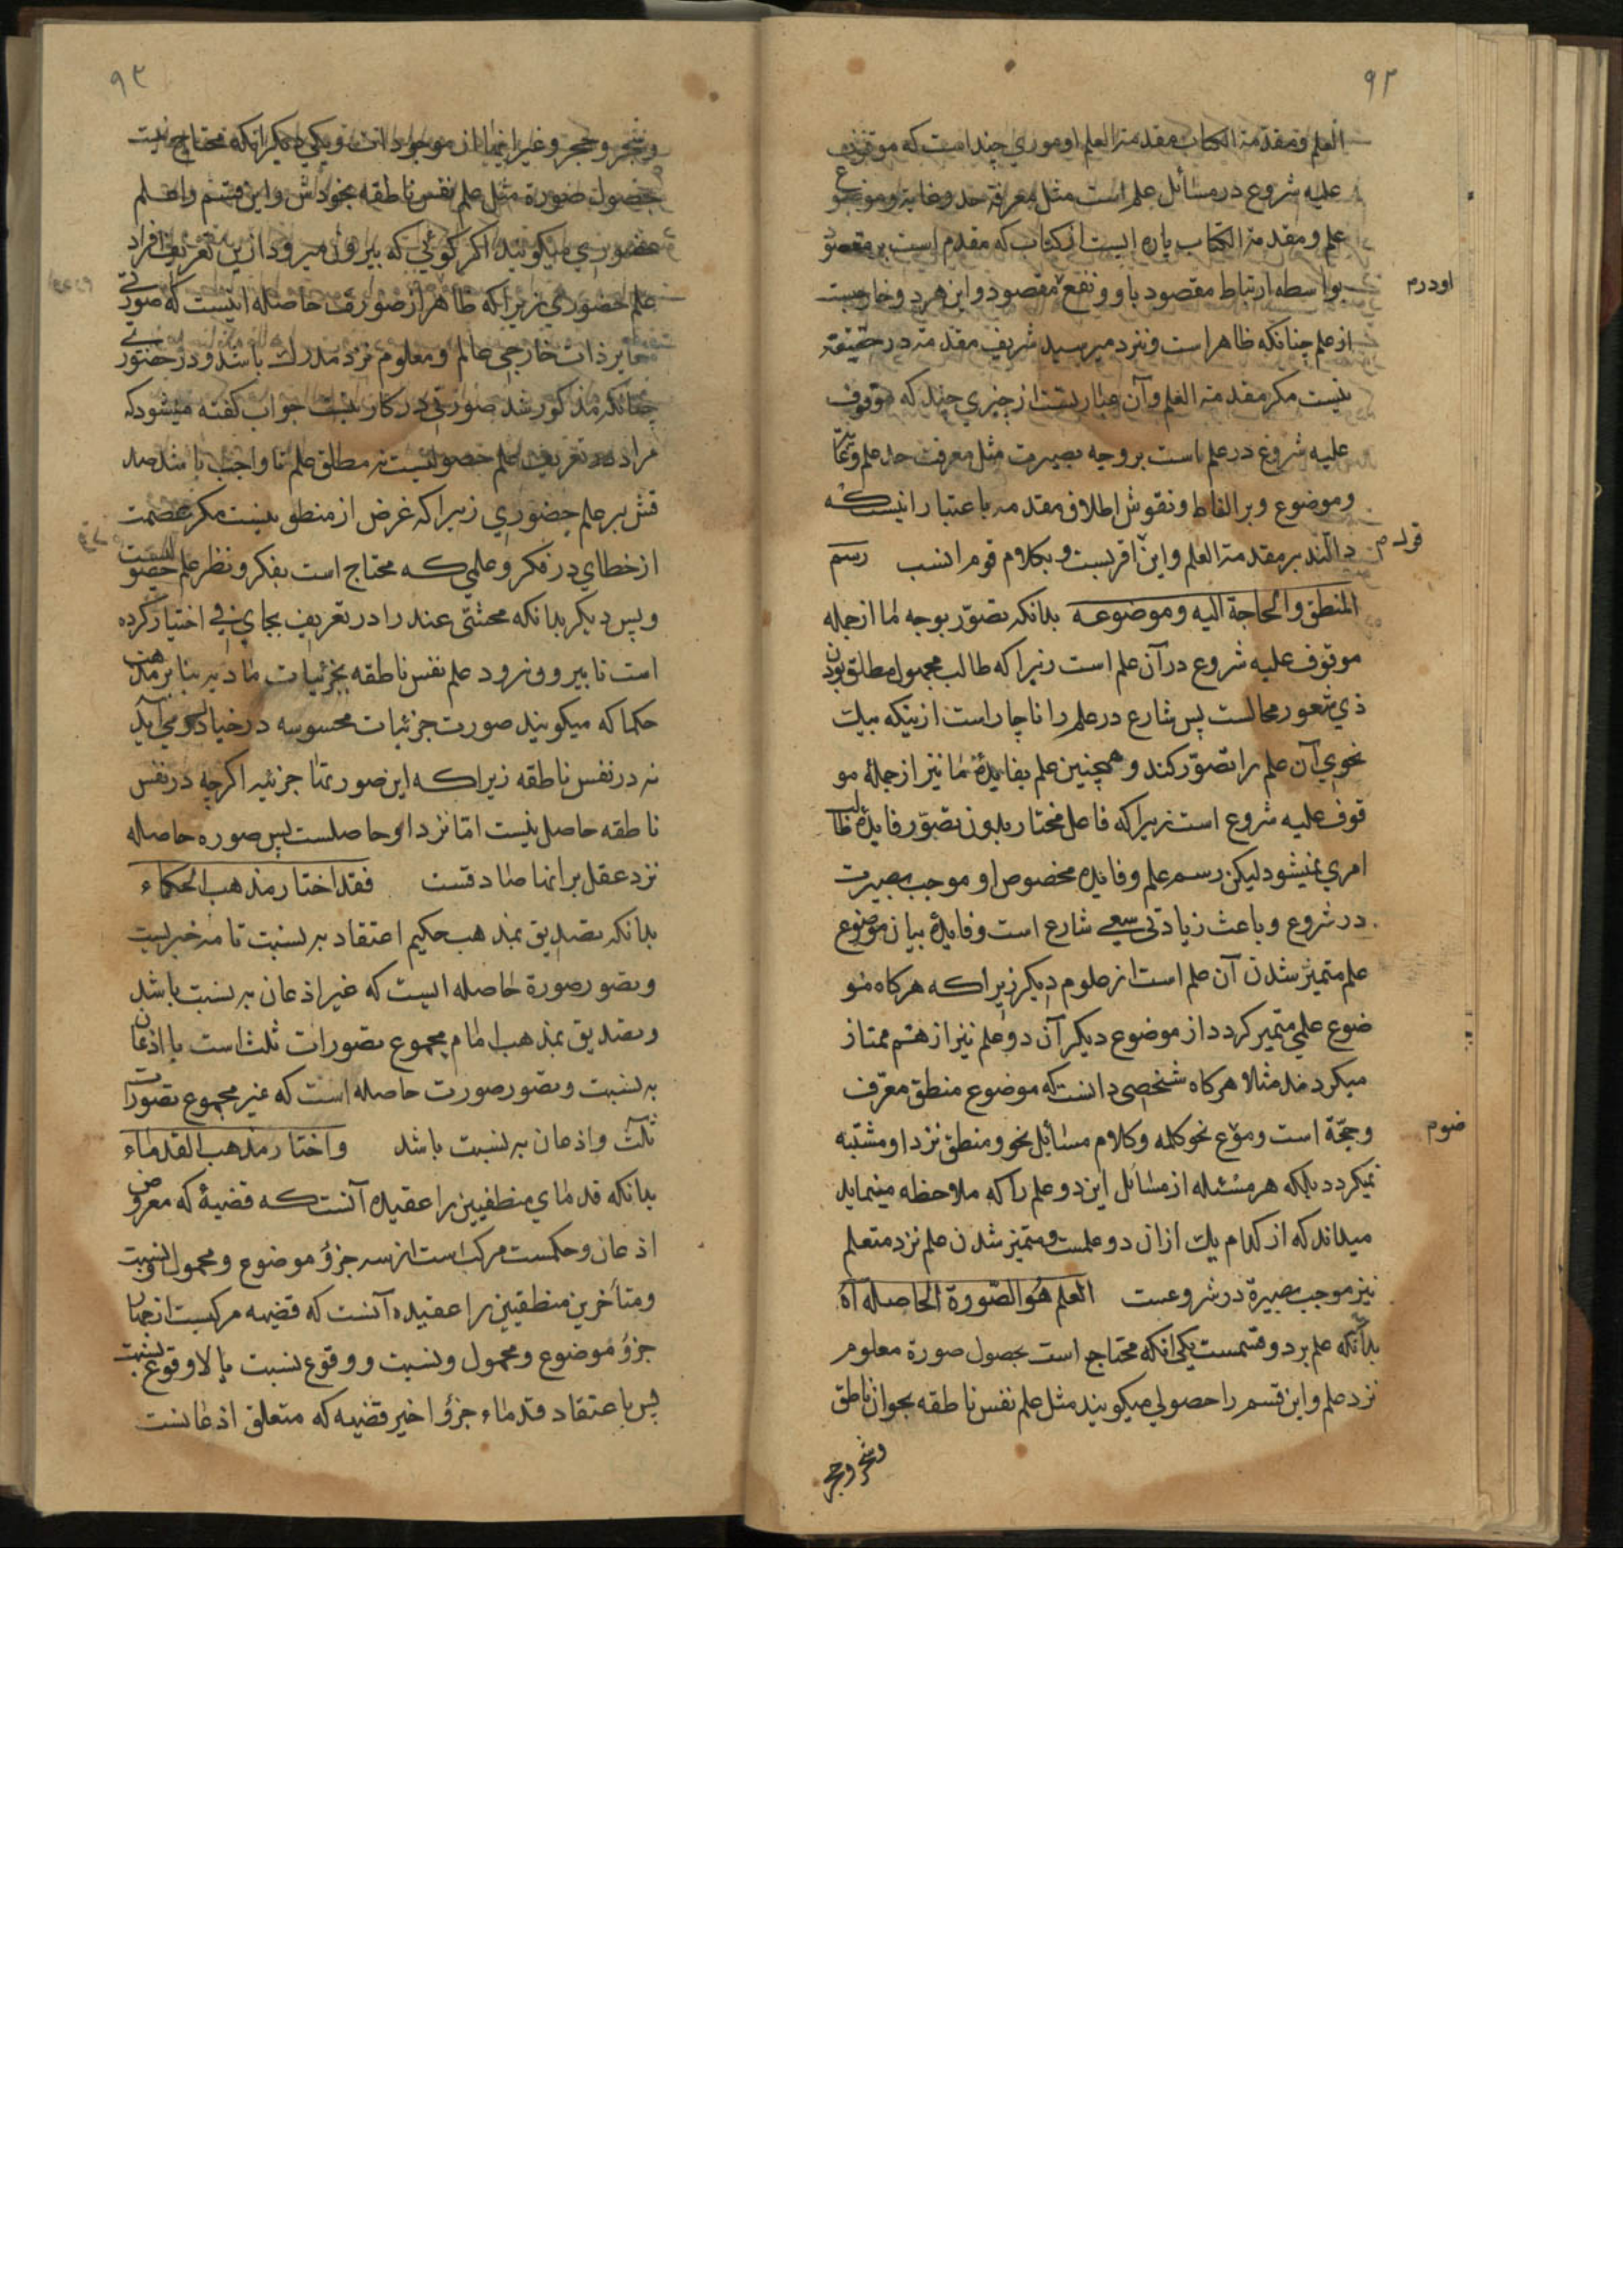 ۹۲
العلم و مقدمة الکتاب مقدمة العلم اوموري چند است که موقوف
علیه شروع در مسائل علم است مثل معرفة حد و غایة و موضوع
علم و مقدمة الکتاب پاره ایست از کتاب که مقدم است بر مقصود
بواسطه ارتباط مقصود باو و نفع مقصود و این هر دو خارجست
اودرم
از علم چنانکه ظاهر است و نزد میر سید شریف مقدمة در حقیقة
نیست مکر مقدمة العلم و آن عبارتست از چیزي چند که موقوف
علیه شروع در علم است بر وجه بصیرت مثل معرفت حد علم و غایة
و موضوع و بر الفاظ و نقوش اطلاق مقدمه باعتبار اینست که
دالند بر مقدمة العلم و این اقربست و بکلام قوم انسب رسم
المنطق والحاجة الیه و موضوعه بدانکه تصوّر بوجه ما از جمله
موقوف علیه شروع در آن علم است زیرا که طالب مجهول مطلق بودن
ذي شعور محالست پس شارع در علم را ناچار است از ینکه بیك
نحوي آن علم را تصوّر کند و همچنین علم بفایدهٔ ما نیز از جملهٔ مو
قوف علیه شروع است زیرا که فاعل مختار بدون تصوّر فایده طالب
امري نمیشود لیکن رسم علم و فایده مخصوص او موجب بصیرت
در شروع و باعث زیادتی سعی شارع است و فایدهٔ بیان موضوع
علم متمیّز شدن آن علم است از علوم دیکر زیرا که هرکاه مو
ضوع علمي متمیز کردد از موضوع دیکر آن دو علم نیز از هم ممتاز
میکردند مثلا هرکاه شخصی دانست که موضوع منطق معرّف
و حجّة است و موع نحو کلمه و کلام مسائل نحو و منطق نزد او مشتبه
ضوم
نمیکردد بلکه هر مسئله از مسائل این دو علم را که ملاحظه مینماید
میداند که از کدام یك از ان دو علمست و متمیز شدن علم نزد متعلم
نیز موجب بصیرة در شروعست العلم هو الصّورة الحاصله آه
بدانکه علم بر دو قسمست یکی انکه محتاج است بحصول صورة معلوم
نزد علم و این قسم را حصولي میکویند مثل علم نفس ناطقه بحیوان ناطق
و شجر و حجر
۹۳
و شجر و حجر و غیر اینها از موجودات و یکي دیکر انکه محتاج نیست
بحصول صورة مثل علم نفس ناطقه بخودش و این قسم را علم
حضوري میکویند اکر کوئي که بیرون میرود از ین تعریف افراد
علم حضوري زیرا که ظاهر از صورت حاصله اینست که صورتي
مغایر ذات خارجي عالم و معلوم نزد مدرك باشد و در حضوري
چنانکه مذکور شد صورتي در کار نیست جواب کفته میشود که
مراد تعریف علم حصولیست نه مطلق علم تا واجب باشد صد
قش بر علم حضوري زیرا که غرض از منطق نیست مکر عصمت
از خطاي در فکر و علمي که محتاج است بفکر و نظر علم حصولیست
و پس دیکر بدانکه محشّی عند را در تعریف بجاي في اختیار کرده
است تا بیرون نرود علم نفس ناطقه بجزئیات مادیه بنا بر مذهب
حکما که میکویند صورت جزئیات محسوسه در خیال در مي آید
نه در نفس ناطقه زیرا که این صورتها جزئیه اکرچه در نفس
ناطقه حاصل نیست امّا نزد او حاصلست پس صوره حاصله
نزد عقل بر انها صادقست فقد اختار مذهب الحکماء
بدانکه تصدیق بمذهب حکیم اعتقاد به نسبت تامه خبریست
و تصور صورة حاصله ایست که غیر اذعان به نسبت باشد
و تصدیق بمذهب امام مجموع تصورات ثلث است با اذعان
به نسبت و تصور صورت حاصله است که غیر مجموع تصورات
ثلث و اذعان به نسبت باشد و اختار مذهب القدماء
بدانکه قدماي منطقیین را عقیده آنست که قضیهٔ که معروض
اذعان و حکمست مرکب است از سه جزؤ موضوع و محمول و نسبت
و متأخرین منطقیین را عقیده آنست که قضیه مرکبست از چهار
جزؤ موضوع و محمول و نسبت و وقوع نسبت یا لا وقوع نسبت
پس باعتقاد قدماء جزؤ اخیر قضیه که متعلق اذعانست